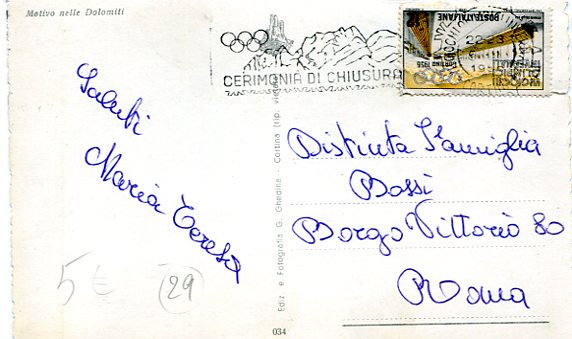 Motivo nelle Dolomiti
Saluti
Maria Teresa
5 €
29
CERIMONIA DI CHIUSURA
POSTE ITALIANE
CORTINA 1956
Ediz e Fotografia G. Ghedina - Cortina (rip. vietata)
034
Distinta Famiglia
Bossi
Borgo Vittorio 80
Roma